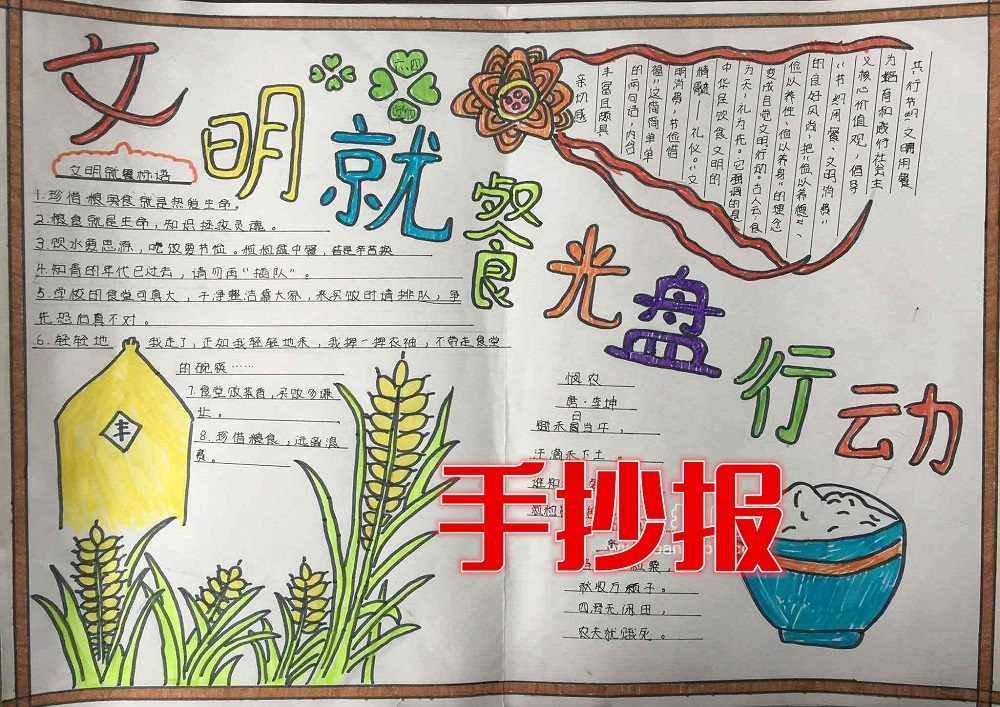 文明就餐光盘行动
六.四
文明就餐标语
1.珍惜粮食就是热爱生命。
2.粮食就是生命，知识拯救灵魂。
3.饮水要思源，吃饭要节俭。粒粒盘中餐，皆是辛苦换
4.知青的年代已过去，请勿再“插队”。
5.学校的食堂可真大，干净整洁靠大家，来买饭时请排队，争
先恐后真不对。
6.轻轻地 我走了，正如我轻轻地来，我挥一挥衣袖，不带走食堂
的碗筷……
7.食堂饭菜香，买饭勿嫌
8.珍惜粮食，远离浪
费。
丰
共行节约文明用餐
为培育和践行社会主
义核心价值观，倡导
“节约用餐、文明消费”
的良好风尚，把“俭以养德”、
俭以养性、俭以养身”的理念
变成自觉文明行动。古人云：食
为天，礼为先。它强调的是
中华民饮食文明的
精髓——礼仪。“文
明消费，节俭惜
福”这简简单单
的两句话，内含
丰富且颇具
亲切感
悯农
唐·李绅
锄禾日当午，
汗滴禾下土。
谁知
粒粒
粟，
秋收万颗子。
四海无闲田，
农夫犹饿死。
手抄报